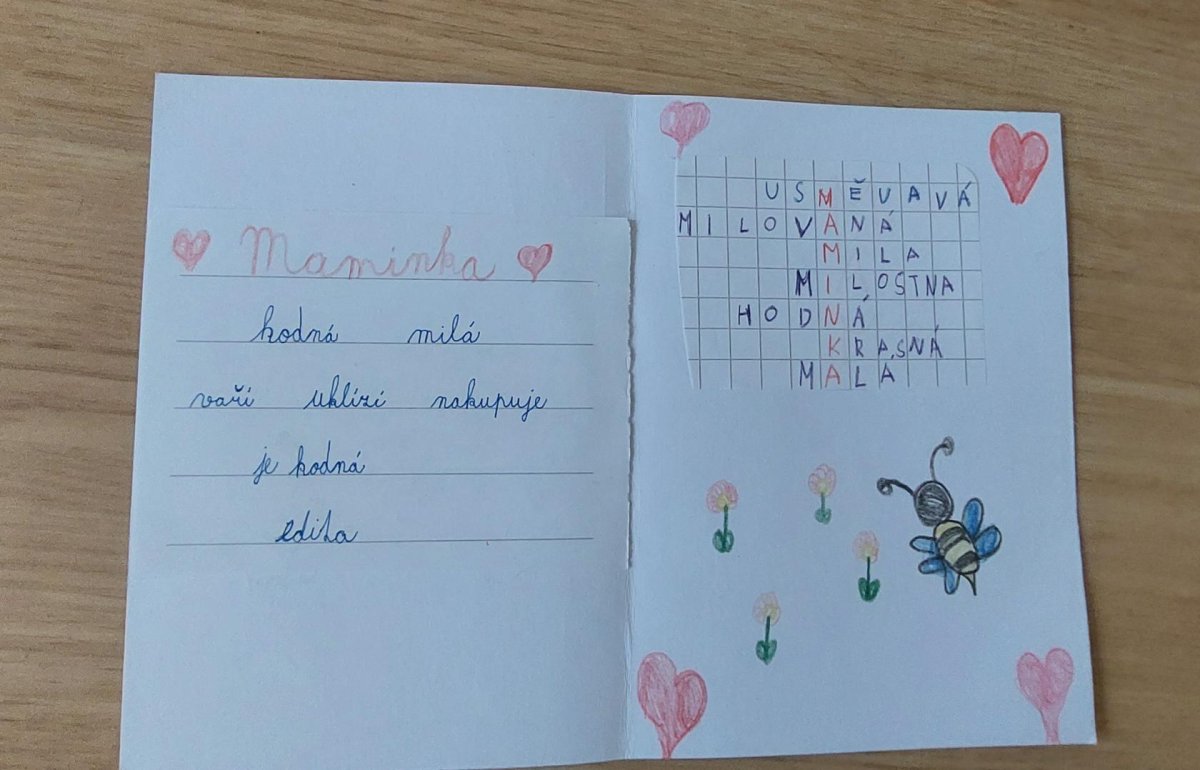 Maminka
hodná milá
vaří uklízí nakupuje
je hodná
edita
USMĚVAVÁ
MILOVANÁ
MILA
MILOSTNA
HODNÁ
KRASNÁ
MALA